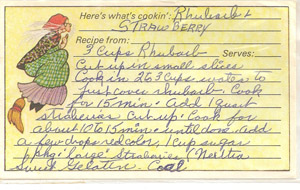 Here's what's cookin': Rhubarb &
STRAWBERRY
Recipe from: Serves:
3 Cups Rhubarb
Cut up in small slices
Cook in 2 to 3 Cups water to
just cover rhubarb. Cook
for 15 min. Add 1 quart
Cut up. Cook for
about 10 to 15 min. until done. add
a few drops red color 1 Cup sugar
1 pkg "large"
sweet Gelatin. Cool